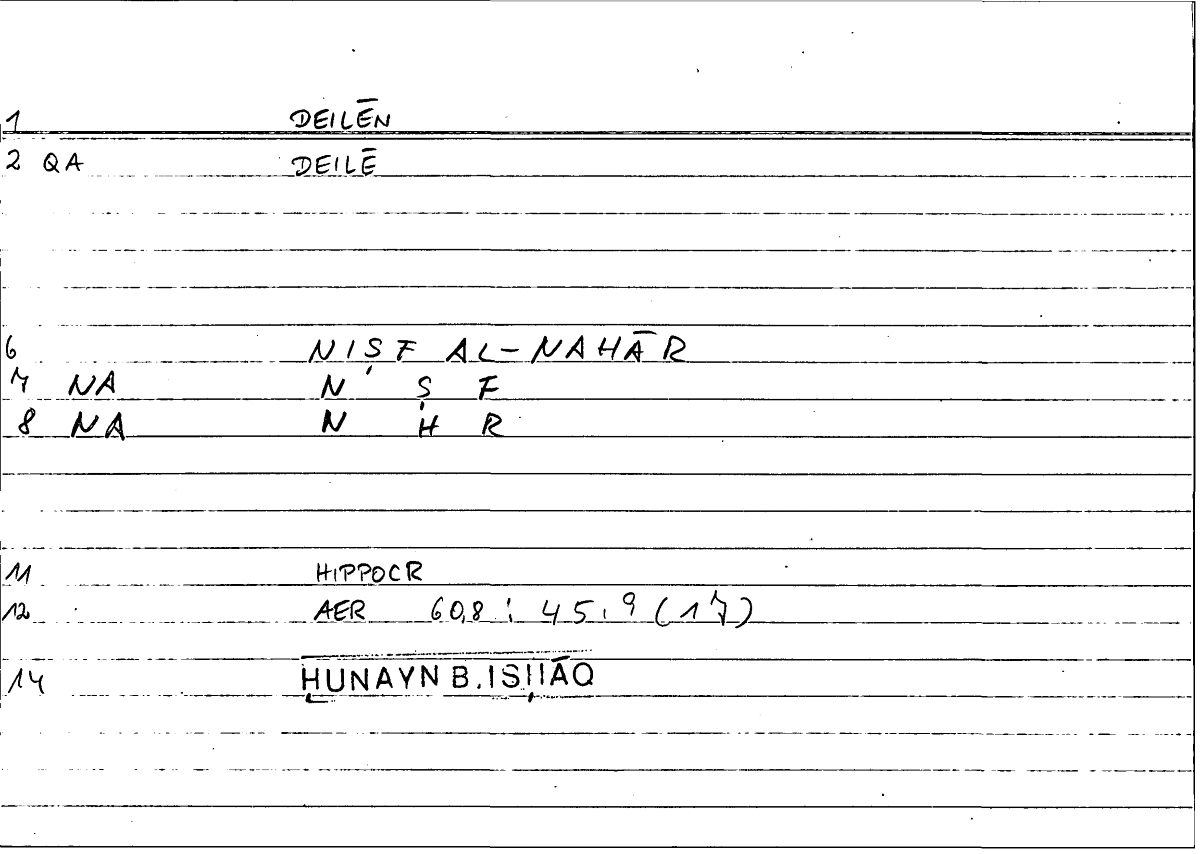 1 DEILĒN
2 QA DEILĒ
6 NIṢF AL-NAHĀR
7 NA N Ṣ F
8 NA N H R
11 HIPPOCR
12 AER 60,8 : 45,9 (17)
14 ḤUNAYN B. ISḤĀQ